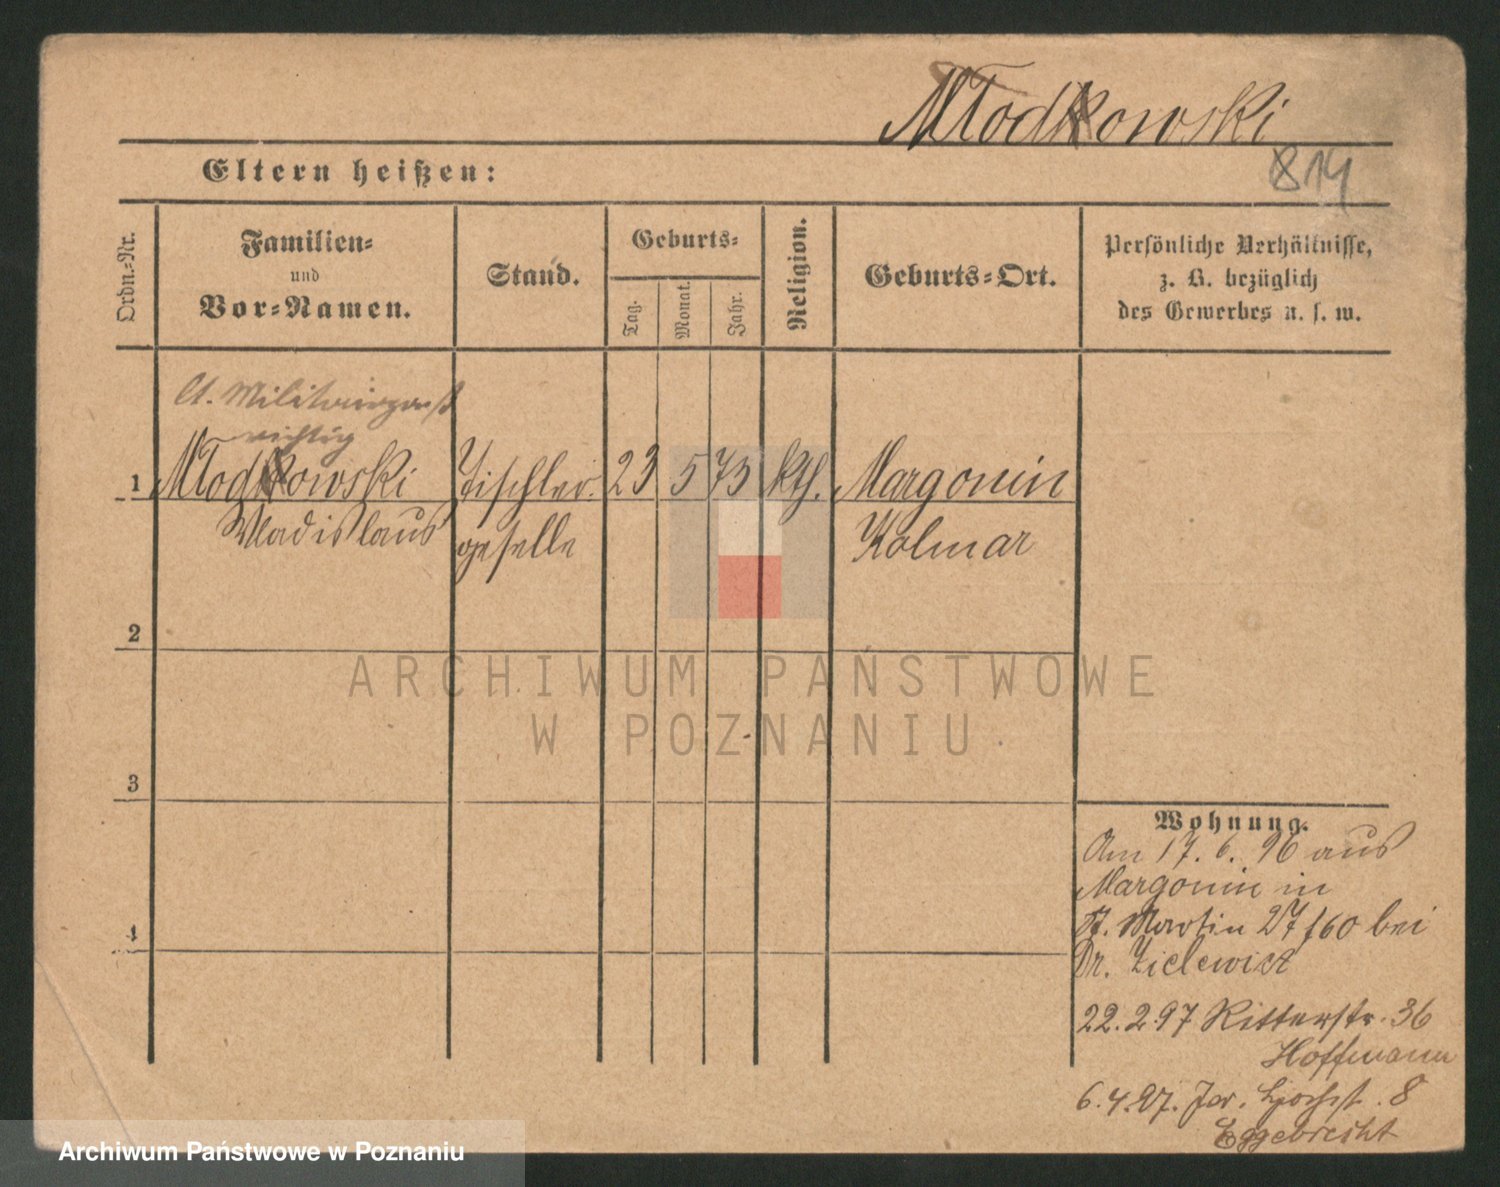 Młodkowski
814
Eltern heißen:
Ordn.-Nr.
Familien-
und
Vor-Namen.
Stand.
Geburts-
Tag.
Monat.
Jahr.
Religion.
Geburts-Ort.
Persönliche Verhältnisse,
z. B. bezüglich
des Gewerbes u. s. w.
lt. Militairpaß
richtig
1 Młodkowski Tischler- 23 5 73 kth. Margonin
Wladislaus geselle Kolmar
2
3
4
ARCHIWUM PAŃSTWOWE
W POZNANIU
Wohnung.
Am 17. 6. 96 aus
Margonin in
St. Martin 27/60 bei
Dr. Zielewicz
22. 2. 97 Ritterstr. 36
Hoffmann
6. 4. 97. 8
Eggebrecht
Archiwum Państwowe w Poznaniu